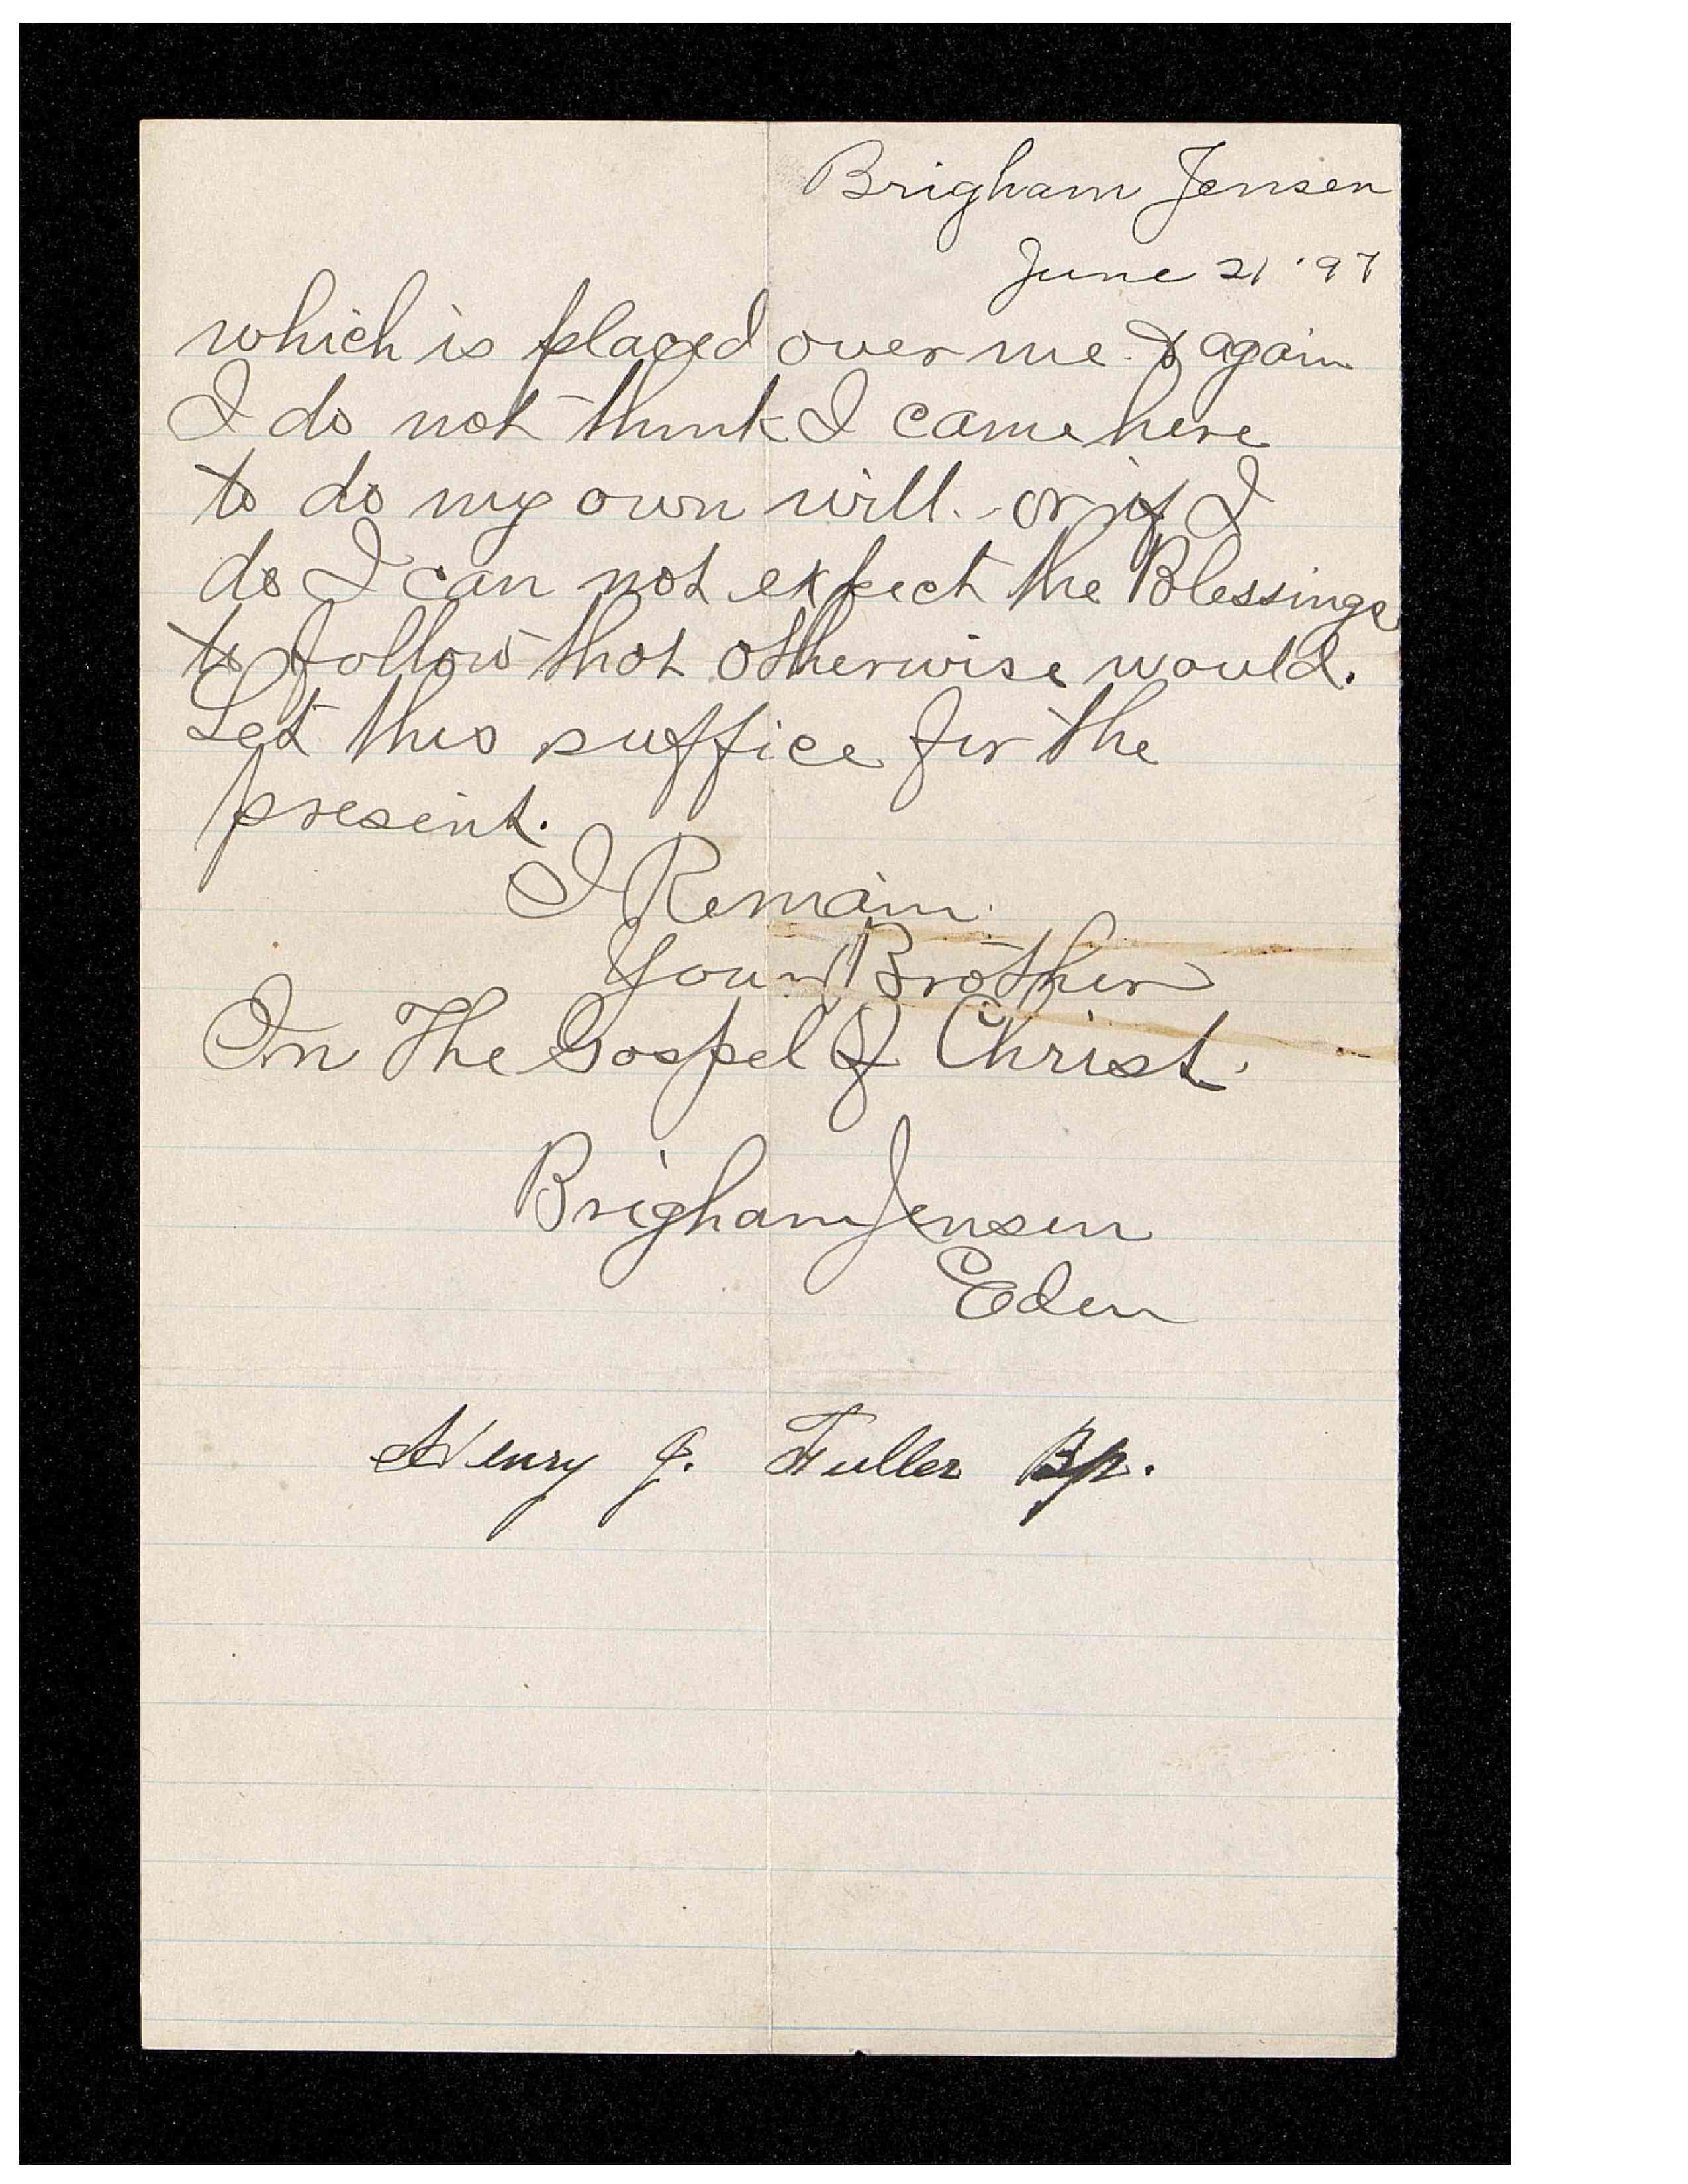 Brigham Jensen
June 21 '97
which is placed over me. & again
I do not think I came here
to do my own will. - or if I
do I can not expect the Blessings
to follow that otherwise would.
Let this suffice for the
present.
I Remain.
Your Brother
In The Gospel of Christ.
Brigham Jensen
Eden
Henry J. Fuller Bp.